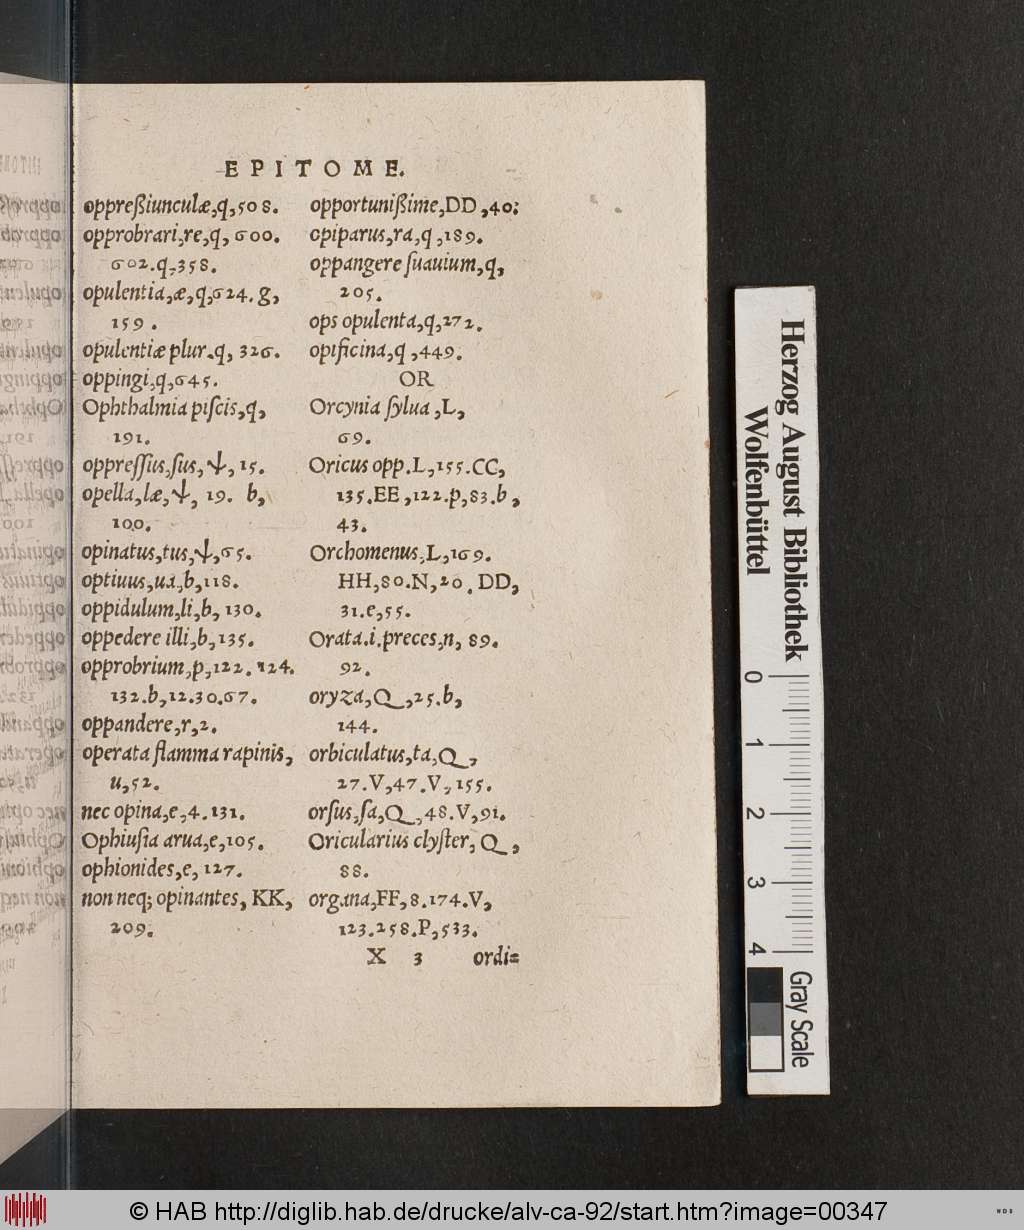 EPITOME.
oppreßiunculæ,q,508.
opprobrari,re,q,600.
602.q,358.
opulentia,æ,q,624.g,
159.
opulentiæ plur.q, 326.
oppingi,q,645.
Ophthalmia piſcis,q,
191.
oppreſſius,ſus,ψ,15.
opella,læ,ψ, 19. b,
100.
opinatus,tus,ψ,65.
optiuus,ua,b,118.
oppidulum,li,b, 130.
oppedere illi,b,135.
opprobrium,p,122.124.
132.b,12.30.67.
oppandere,r,2.
operata flamma rapinis,
u,52.
nec opina,e,4.131.
Ophiuſia arua,e,105.
ophionides,e, 127.
non neq; opinantes, KK,
209.
opportunißime,DD,40.
opiparus,ra,q,189.
oppangere ſuauium,q,
205.
ops opulenta,q,272.
opificina,q,449.
OR
Orcynia ſylua,L,
69.
Oricus opp.L,155.CC,
135.EE,122.p,83.b,
43.
Orchomenus,L,169.
HH,80.N,20. DD,
31.e,55.
Orata.i.preces,n, 89.
92.
oryza,Q,25.b,
144.
orbiculatus,ta,Q,
27.V,47.V,155.
orſus,ſa,Q,48.V,91.
Oricularius clyſter, Q,
88.
organa,FF,8.174.V,
123.258.P,533.
X 3 ordi=
Herzog August Bibliothek
Wolfenbüttel
0 1 2 3 4
Gray Scale
© HAB http://diglib.hab.de/drucke/alv-ca-92/start.htm?image=00347